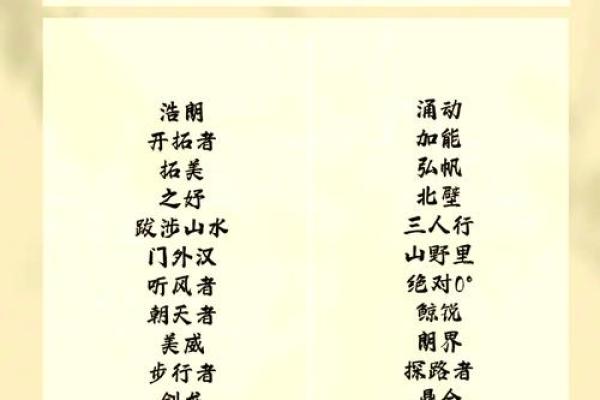 浩朗
开拓者
拓美
之好
跋涉山水
门外汉
听风者
朝天者
美威
步行者
涌动
加能
弘帆
北壁
三人行
山野里
绝对0°
鲸锐
朗界
探路者